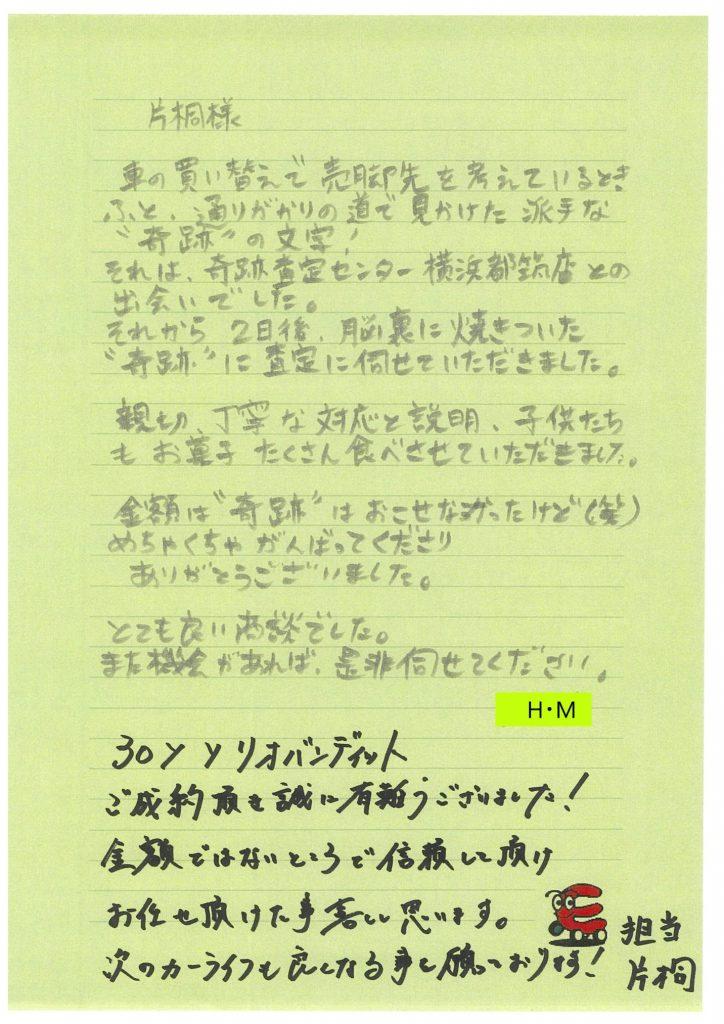 片桐様
車の買い替えで売却先を考えているとき
ふと、通りがかりの道で見かけた派手な
“奇跡”の文字！
それは、奇跡査定センター横浜都筑店との
出会いでした。
それから2日後、脳裏に焼きついた
“奇跡”に査定に伺せていただきました。
親切、丁寧な対応と説明、子供たち
もお菓子たくさん食べさせていただきました。
金額は“奇跡”はおこせなかったけど(笑)
めちゃくちゃがんばってくださり
ありがとうございました。
とても良い商談でした。
また機会があれば、是非伺せてください。
H・M
30ソソリオバンディット
ご成約頂き誠に有難うございました！
金額ではないところで信頼して頂け
お任せ頂けた事喜しく思います。
次のカーライフも良くなる事を願っております！
担当
片桐